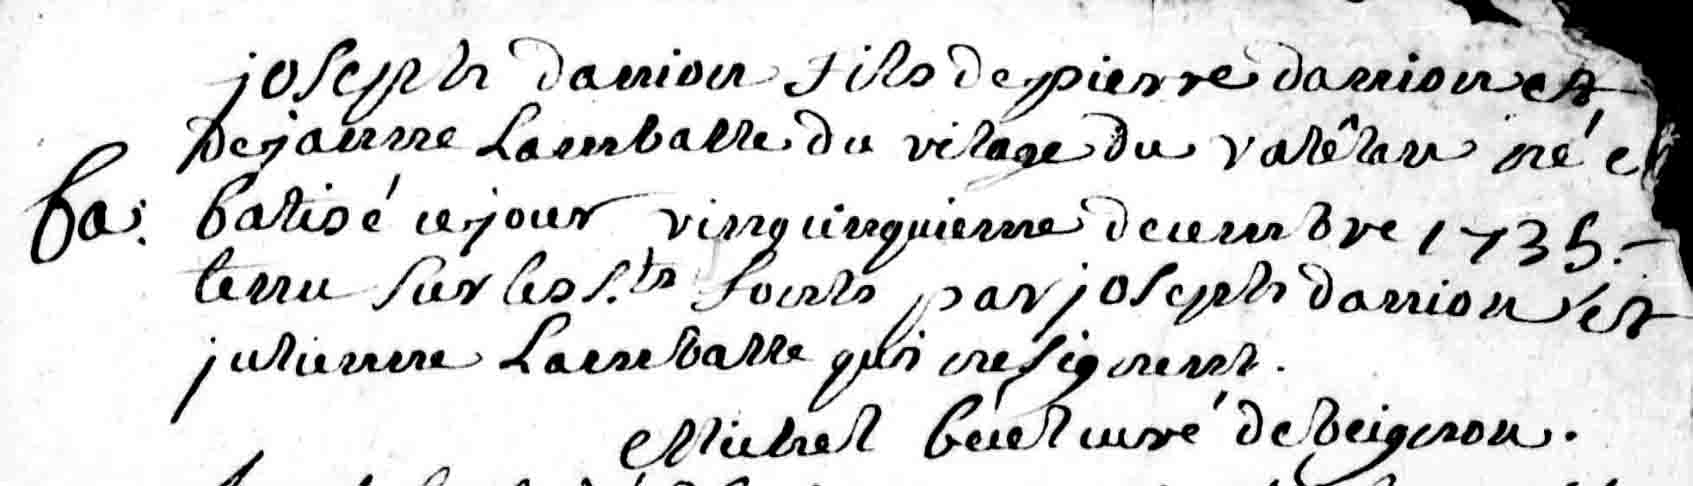 joseph danion fils de pierre danion et
de janne Lamballe du vilage du né e
ba: batisé ce jour vingcinquieme decembre 1735.
tenu sur les s.ts fonts par joseph danion et
julienne Lamballe qui ne signent.
Michel curé de beignon.